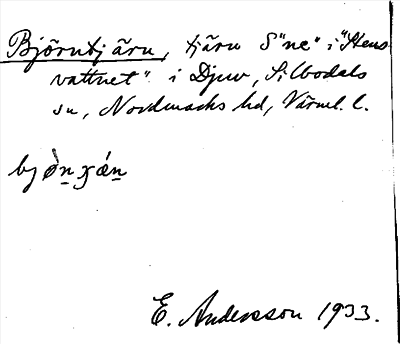 Björntjärn, tjärn S"ne" i "Stens
vattnet" i Djuv, Silbodals
sn, Nordmarks hd, Värml. l.
E. Andersson 1933.